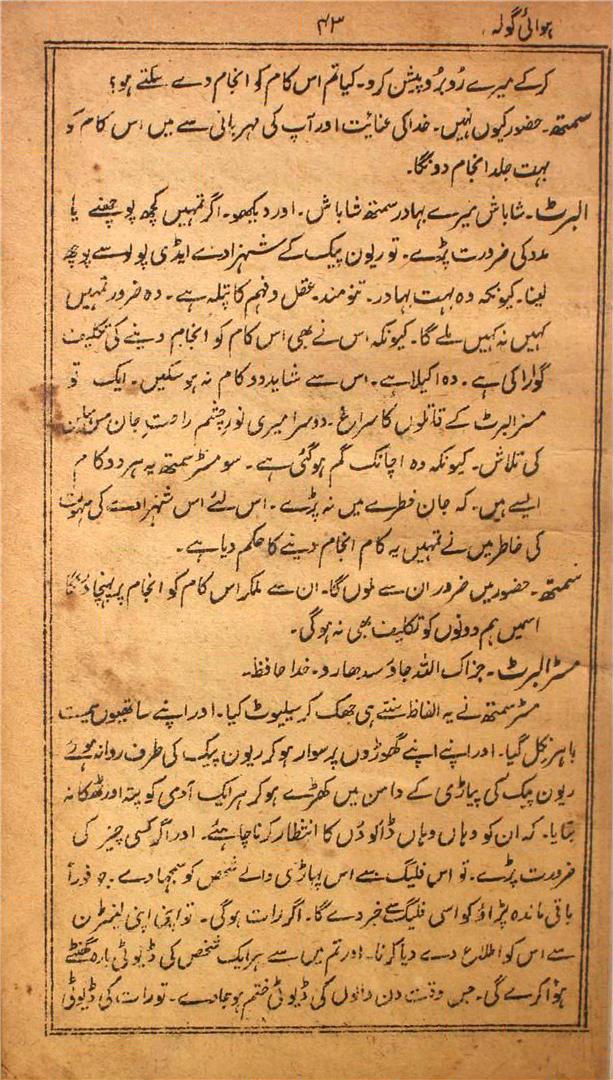 ہوائی گولہ
۴۳
کرکے میرے رُوبرُو پیش کرو۔ کیا تم اس کام کو انجام دے سکتے ہو؟
سمتھ۔ حضور کیوں نہیں۔ خدا کی عنائت اور آپ کی مہربانی سے میں اس کام کو
بہت جلد انجام دونگا۔
البرٹ۔ شاباش میرے بہادر سمتھ شاباش۔ اور دیکھو۔ اگر تمہیں کچھ پوچھنے یا
مدد کی ضرورت پڑے۔ تو ریون پیک کے شہزادے ایڈی پولو سے پوچھ
لینا۔ کیونکہ وہ بہت بہادر۔ تنومند۔ عقل و فہم کا پتلہ ہے۔ وہ ضرور تمہیں
کہیں نہ کہیں ملے گا۔ کیونکہ اس نے بھی اس کام کو انجام دینے کی تکلیف
گوارا کی ہے۔ وہ اکیلا ہے۔ اس سے شاید دو کام نہ ہو سکیں۔ ایک تو
مسز البرٹ کے قاتلوں کا سراغ۔ دوسرا میری نورِ چشم راحتِ جان مس
کی تلاش۔ کیونکہ وہ اچانک گم ہو گئی ہے۔ سو مسٹر سمتھ یہ ہر دو کام
ایسے ہیں۔ کہ جان خطرے میں نہ پڑے۔ اس لئے اس شہزادے کی سہولت
کی خاطر میں نے تمہیں یہ کام انجام دینے کا حکم دیا ہے۔
سمتھ۔ حضور میں ضرور ان سے ملوں گا۔ ان سے ملکر اس کام کو انجام پر پہنچا دونگا
اسمیں ہم دونوں کو تکلیف بھی نہ ہوگی۔
مسٹر البرٹ۔ جزاک اللہ جاؤ سدھارو۔ خدا حافظ۔
مسٹر سمتھ نے یہ الفاظ سنتے ہی جھک کر سیلیوٹ کیا۔ اور اپنے ساتھیوں سمیت
باہر نکل گیا۔ اور اپنے اپنے گھوڑوں پر سوار ہو کر ریون پیک کی طرف روانہ ہوئے
ریون پیک کی پہاڑی کے دامن میں کھڑے ہو کر ہر ایک آدمی کو پتہ اور ٹھکانہ
بتایا۔ کہ ان کو وہاں وہاں ڈاکوؤں کا انتظار کرنا چاہئے۔ اور اگر کسی چیز کی
ضرورت پڑے۔ تو اس فلیگ سے اس پہاڑی والے شخص کو سمجھا دے۔ جو فوراً
باقی ماندہ پڑاؤ کو اسی فلیگ سے خبر دے گا۔ اگر رات ہوگی۔ تو اپنی اپنی لیمٹرن
سے اس کو اطلاع دے دیا کرنا۔ اور تم میں سے ہر ایک شخص کی ڈیوٹی بارہ گھنٹے
ہؤا کرے گی۔ جس وقت دن والوں کی ڈیوٹی ختم ہو جاوے۔ تو رات کی ڈیوٹی